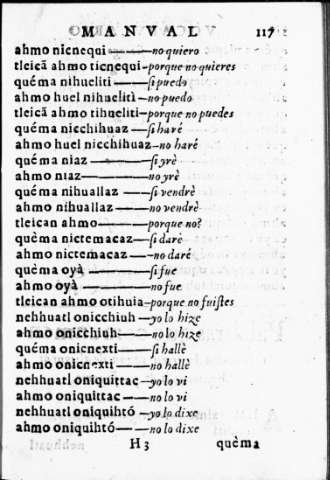 MANVAL 117
ahmo nicnequi —— no quiero
tleicã ahmo ticnequi — porque no quieres
quéma nihueliti —— si puedo
ahmo huel nihuelitì — no puedo
tleicã ahmo tihueliti — porque no puedes
quéma nicchihuaz —— si haré
ahmo huel nicchihuaz — no haré
quéma niaz —— si yrè
ahmo niaz —— no yrè
quéma nihuallaz —— si vendrè
ahmo nihuallaz —— no vendrè
tleican ahmo —— porque no?
quèma nictemacaz — si daré
ahmo nictemacaz —— no daré
quèma oyà —— si fue
ahmo oyà —— no fue
tleican ahmo otihuia — porque no fuistes
nehhuatl onicchiuh — yo lo hize
ahmo onicchiuh —— no lo hize
quéma onicnexti —— si hallè
ahmo onicnexti —— no hallè
nehhuatl oniquittac — yo lo vi
ahmo oniquittac —— no lo vi
nehhuatl oniquihtó — yo lo dixe
ahmo oniquihtó —— no lo dixe
H3 quèma